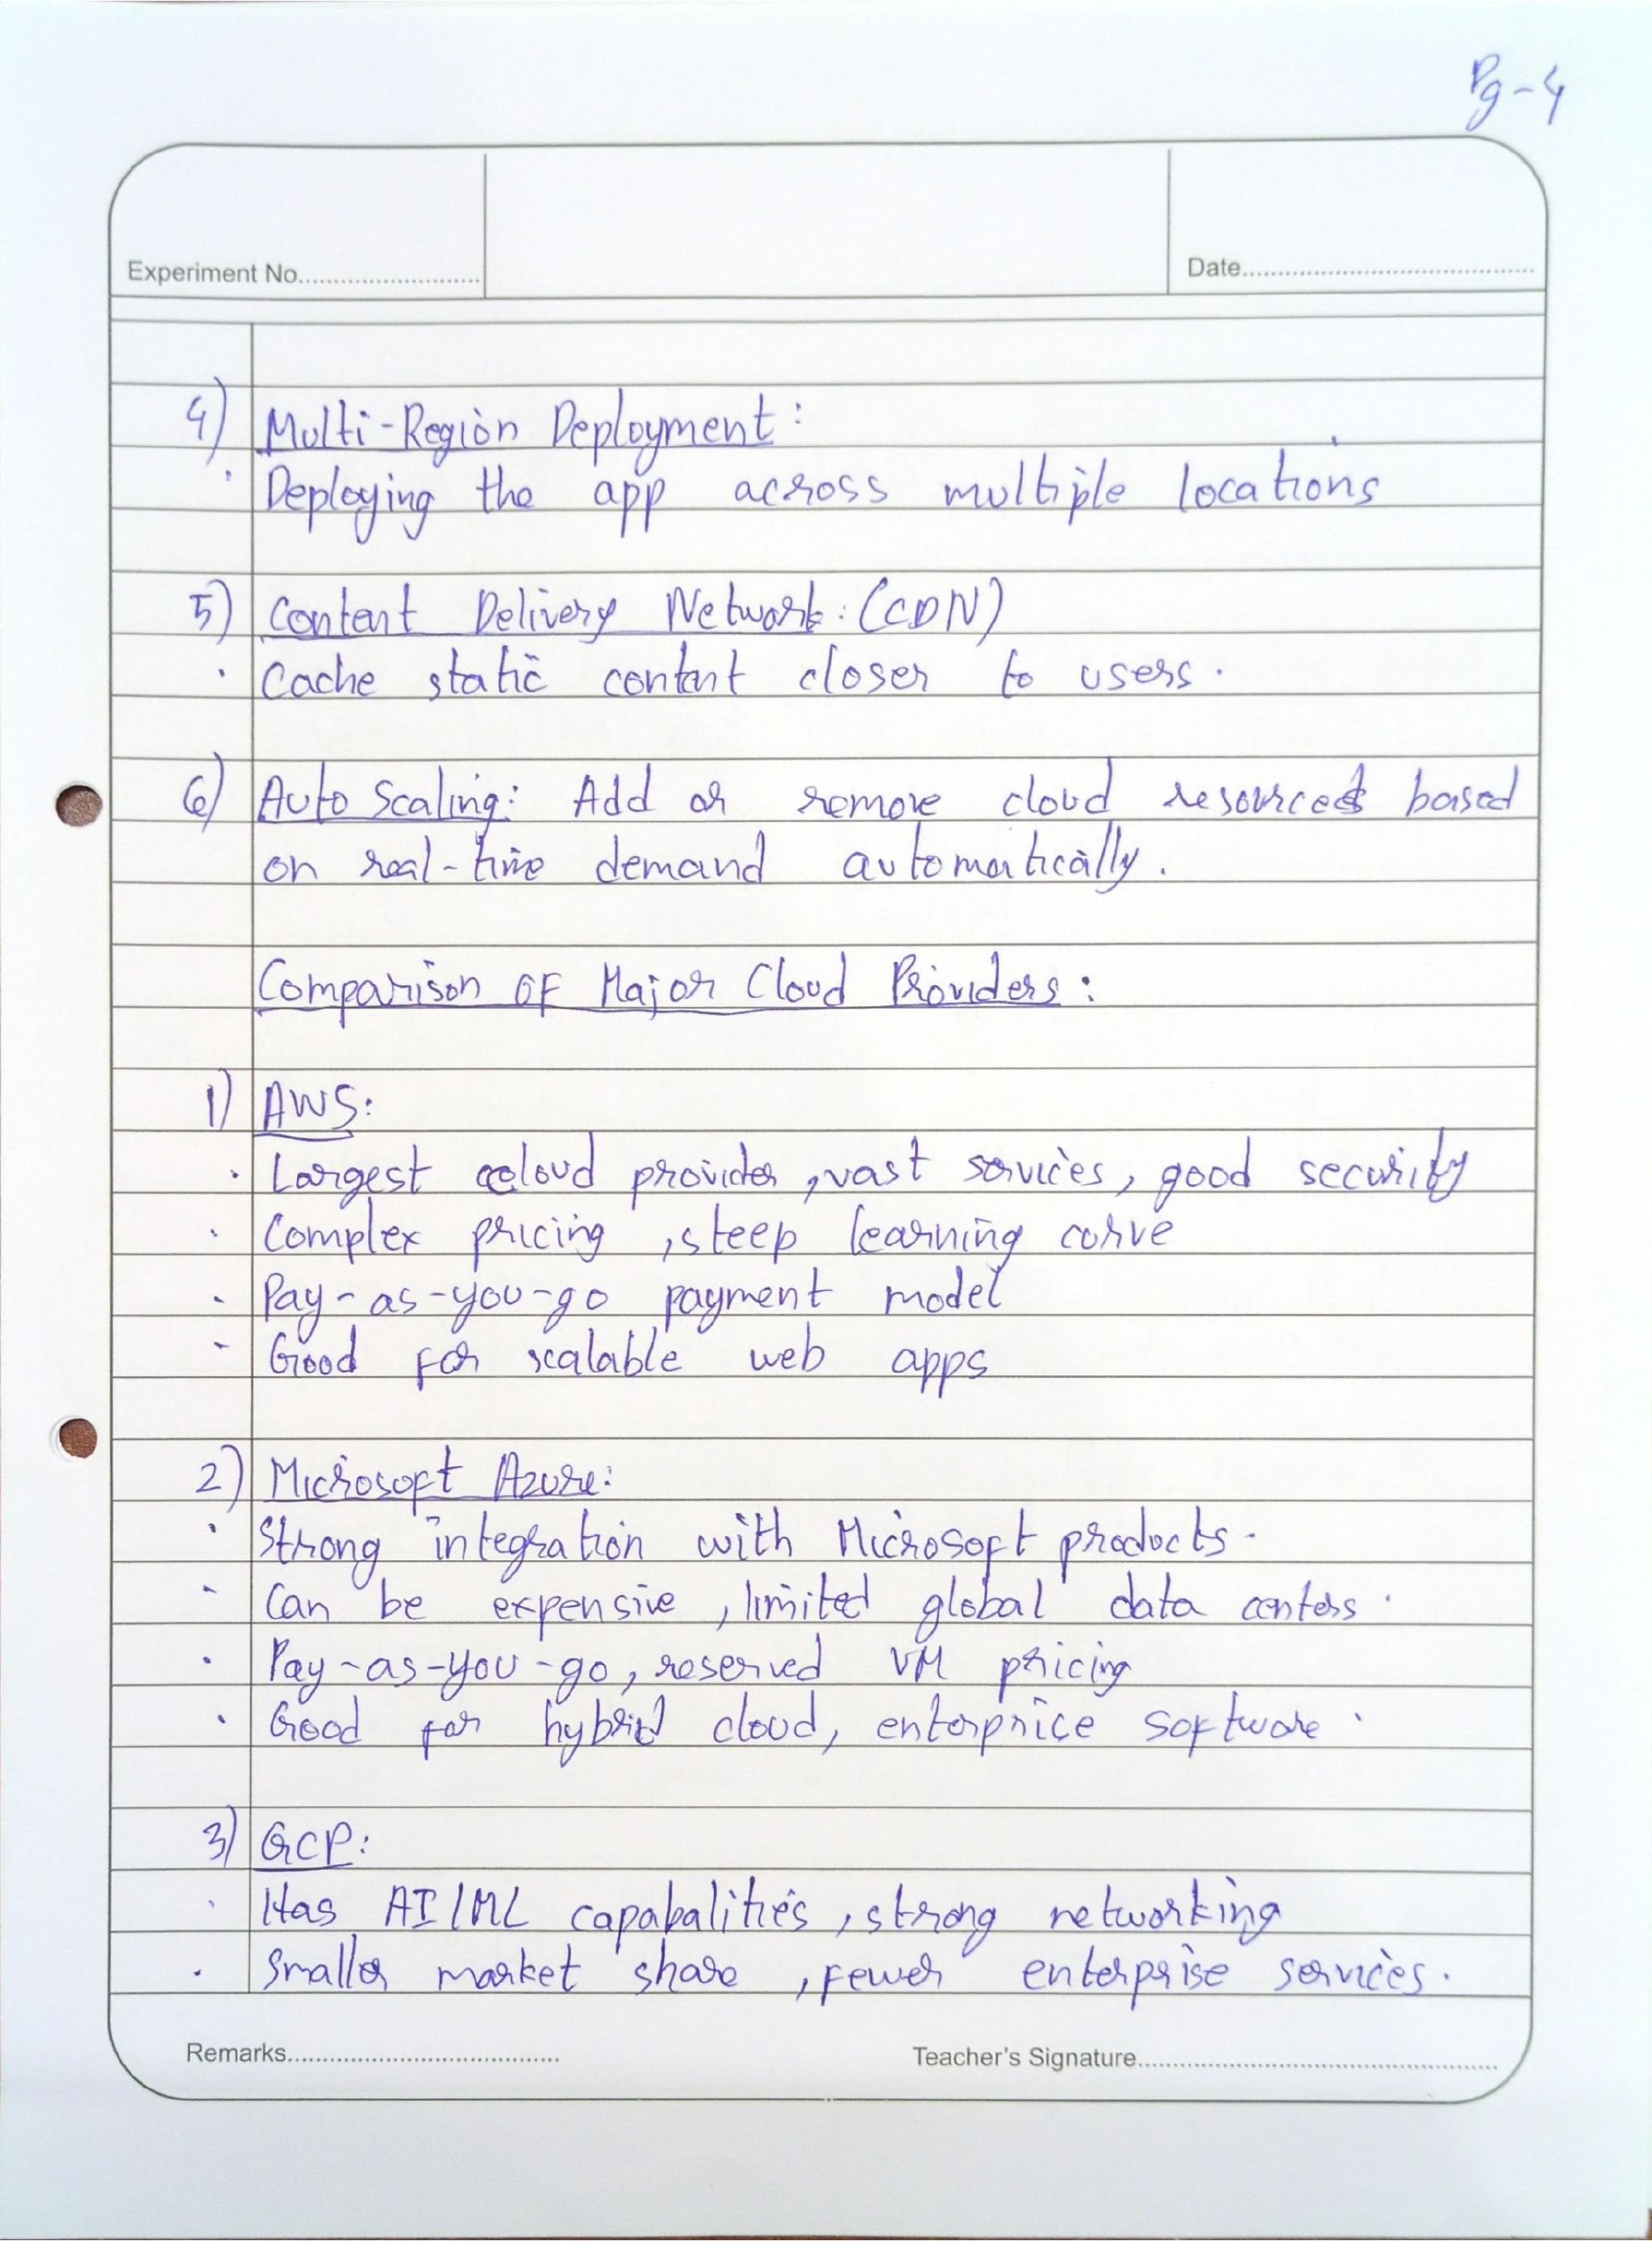 Pg-4
Experiment No.
Date
4) Multi-Region Deployment:
· Deploying the app across multiple locations
5) Content Delivery Network: (CDN)
· Cache static content closer to users.
6) Auto Scaling: Add or remove cloud resources based
on real-time demand automatically.
Comparison OF Major Cloud Providers:
1) AWS:
· Largest cloud provider, vast services, good security
· Complex pricing, steep learning curve
· Pay-as-you-go payment model
- Good for scalable web apps
2) Microsoft Azure:
· Strong integration with Microsoft products.
- Can be expensive, limited global data centers.
· Pay-as-you-go, reserved VM pricing
· Good for hybrid cloud, enterprice software.
3) GCP:
· Has AI/ML capabalities, strong networking
· Smaller market share, fewer enterprise services.
Remarks
Teacher's Signature